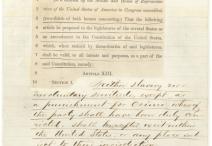 of the United States of America in Congress assembled,
(two-thirds of both houses concurring,) That the following
article be proposed to the legislatures of the several States as
an amendment to the Constitution of the United States,
which, when ratified by three-fourths of said legislatures,
shall be valid, to all intents and purposes, as a part of the
said Constitution, namely:
Article XIII.
Section 1. Neither Slavery nor
involuntary servitude, except as
a punishment for crime whereof
the party shall have been duly con
victed, shall exist within
the United States, or any place sub
ject to their jurisdiction